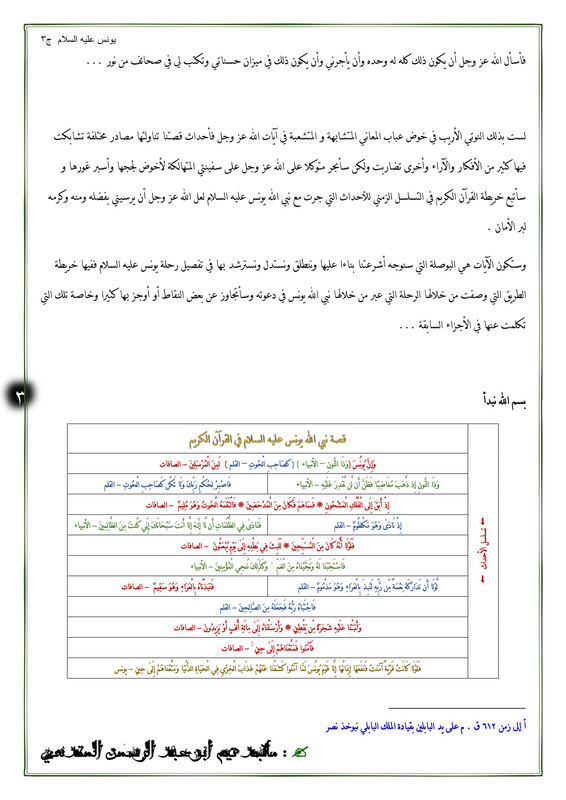 يونس عليه السلام ج٣
فأسأل الله عز وجل أن يكون ذلك كله له وحده وأن يأجرني وأن يكون ذلك في ميزان حسناتي وتكتب لي في صحائف من نور ...
لست بذلك النوتي الأريب في خوض عباب المعاني المتشابهة و المتشعبة في آيات الله عز وجل فأحداث قصتنا تناولتها مصادر مختلفة تشابكت
فيها كثير من الأفكار والآراء وأخرى تضاربت ولكن سأبحر متوكلا على الله عز وجل على سفينتي المتهالكة لأخوض لججها وأسبر غورها و
سأتبع خريطة القرآن الكريم في التسلسل الزمني للأحداث التي جرت مع نبي الله يونس عليه السلام لعل الله عز وجل أن يرسيني بفضله ومنه وكرمه
لبر الأمان .
وستكون الآيات هي البوصلة التي سنوجه أشرعتنا بناءا عليها وننطلق ونستدل ونسترشد بها في تفصيل رحلة يونس عليه السلام ففيها خريطة
الطريق التي وصفت من خلالها الرحلة التي عبر من خلالها نبي الله يونس في دعوته وسأتجاوز عن بعض النقاط أو أوجز بها كثيرا وخاصة تلك التي
تكلمت عنها في الأجزاء السابقة ...
٣
بسم الله نبدأ
قصة نبي الله يونس عليه السلام في القرآن الكريم
تسلسل الأحداث
وَإِنَّ يُونُسَ (وَذَا النُّونِ – الأنبياء ) (كَصَاحِبِ الْحُوتِ – القلم ) لَمِنَ الْمُرْسَلِينَ – الصافات
وَذَا النُّونِ إِذ ذَّهَبَ مُغَاضِبًا فَظَنَّ أَن لَّن نَّقْدِرَ عَلَيْهِ – الأنبياء
فَاصْبِرْ لِحُكْمِ رَبِّكَ وَلَا تَكُن كَصَاحِبِ الْحُوتِ – القلم
إِذْ أَبَقَ إِلَى الْفُلْكِ الْمَشْحُونِ * فَسَاهَمَ فَكَانَ مِنَ الْمُدْحَضِينَ * فَالْتَقَمَهُ الْحُوتُ وَهُوَ مُلِيمٌ – الصافات
إِذْ نَادَىٰ وَهُوَ مَكْظُومٌ – القلم
فَنَادَىٰ فِي الظُّلُمَاتِ أَن لَّا إِلَٰهَ إِلَّا أَنتَ سُبْحَانَكَ إِنِّي كُنتُ مِنَ الظَّالِمِينَ – الأنبياء
فَلَوْلَا أَنَّهُ كَانَ مِنَ الْمُسَبِّحِينَ * لَلَبِثَ فِي بَطْنِهِ إِلَىٰ يَوْمِ يُبْعَثُونَ – الصافات
فَاسْتَجَبْنَا لَهُ وَنَجَّيْنَاهُ مِنَ الْغَمِّ ۚ وَكَذَٰلِكَ نُنجِي الْمُؤْمِنِينَ – الأنبياء
لَّوْلَا أَن تَدَارَكَهُ نِعْمَةٌ مِّن رَّبِّهِ لَنُبِذَ بِالْعَرَاءِ وَهُوَ مَذْمُومٌ – القلم
فَنَبَذْنَاهُ بِالْعَرَاءِ وَهُوَ سَقِيمٌ – الصافات
فَاجْتَبَاهُ رَبُّهُ فَجَعَلَهُ مِنَ الصَّالِحِينَ – القلم
وَأَنبَتْنَا عَلَيْهِ شَجَرَةً مِّن يَقْطِينٍ * وَأَرْسَلْنَاهُ إِلَىٰ مِائَةِ أَلْفٍ أَوْ يَزِيدُونَ – الصافات
فَآمَنُوا فَمَتَّعْنَاهُمْ إِلَىٰ حِينٍ أ – الصافات
فَلَوْلَا كَانَتْ قَرْيَةٌ آمَنَتْ فَنَفَعَهَا إِيمَانُهَا إِلَّا قَوْمَ يُونُسَ لَمَّا آمَنُوا كَشَفْنَا عَنْهُمْ عَذَابَ الْخِزْيِ فِي الْحَيَاةِ الدُّنْيَا وَمَتَّعْنَاهُمْ إِلَىٰ حِينٍ – يونس
أ إلى زمن ٦١٢ ق . م على يد البابليين بقيادة الملك البابلي نبوخذ نصر